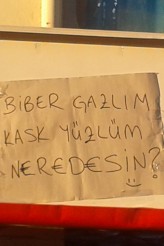 BİBER GAZLIM
KASK YÜZLÜM
NEREDESİN?